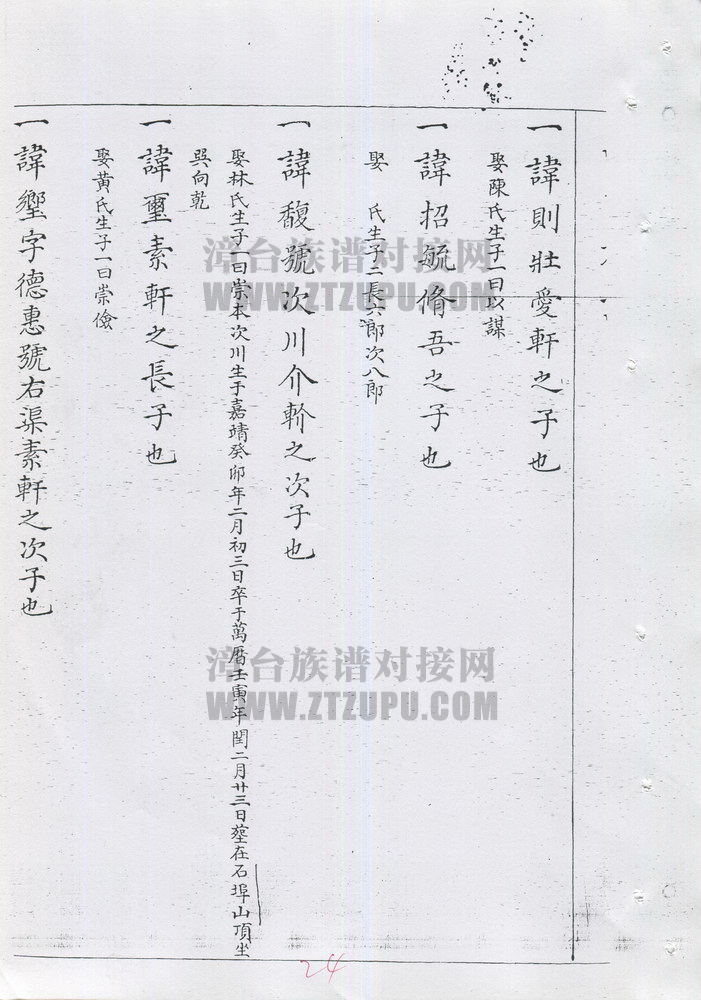 一諱則壯愛軒之子也
娶陳氏生子一曰以謀
一諱招毓脩吾之子也
娶 氏生子二長六郎次八郎
一諱馥號次川介軒之次子也
娶林氏生子一曰崇本次川生于嘉靖癸卯年二月初三日卒于萬曆壬寅年閏二月廿三日塟在石埠山頂坐
巽向乾
一諱璽素軒之長子也
娶黃氏生子一曰崇儉
一諱壐字德惠號右渠素軒之次子也
漳台族谱对接网
WWW.ZTZUPU.COM
漳台族谱对接网
WWW.ZTZUPU.COM
24